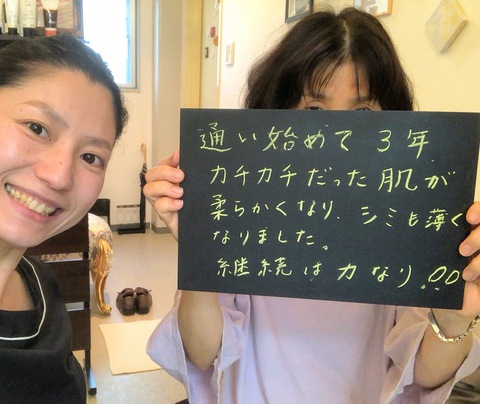 通い始めて 3年
カチカチだった肌が
柔らかくなり、シミも薄く
なりました。
継続は力なり!!